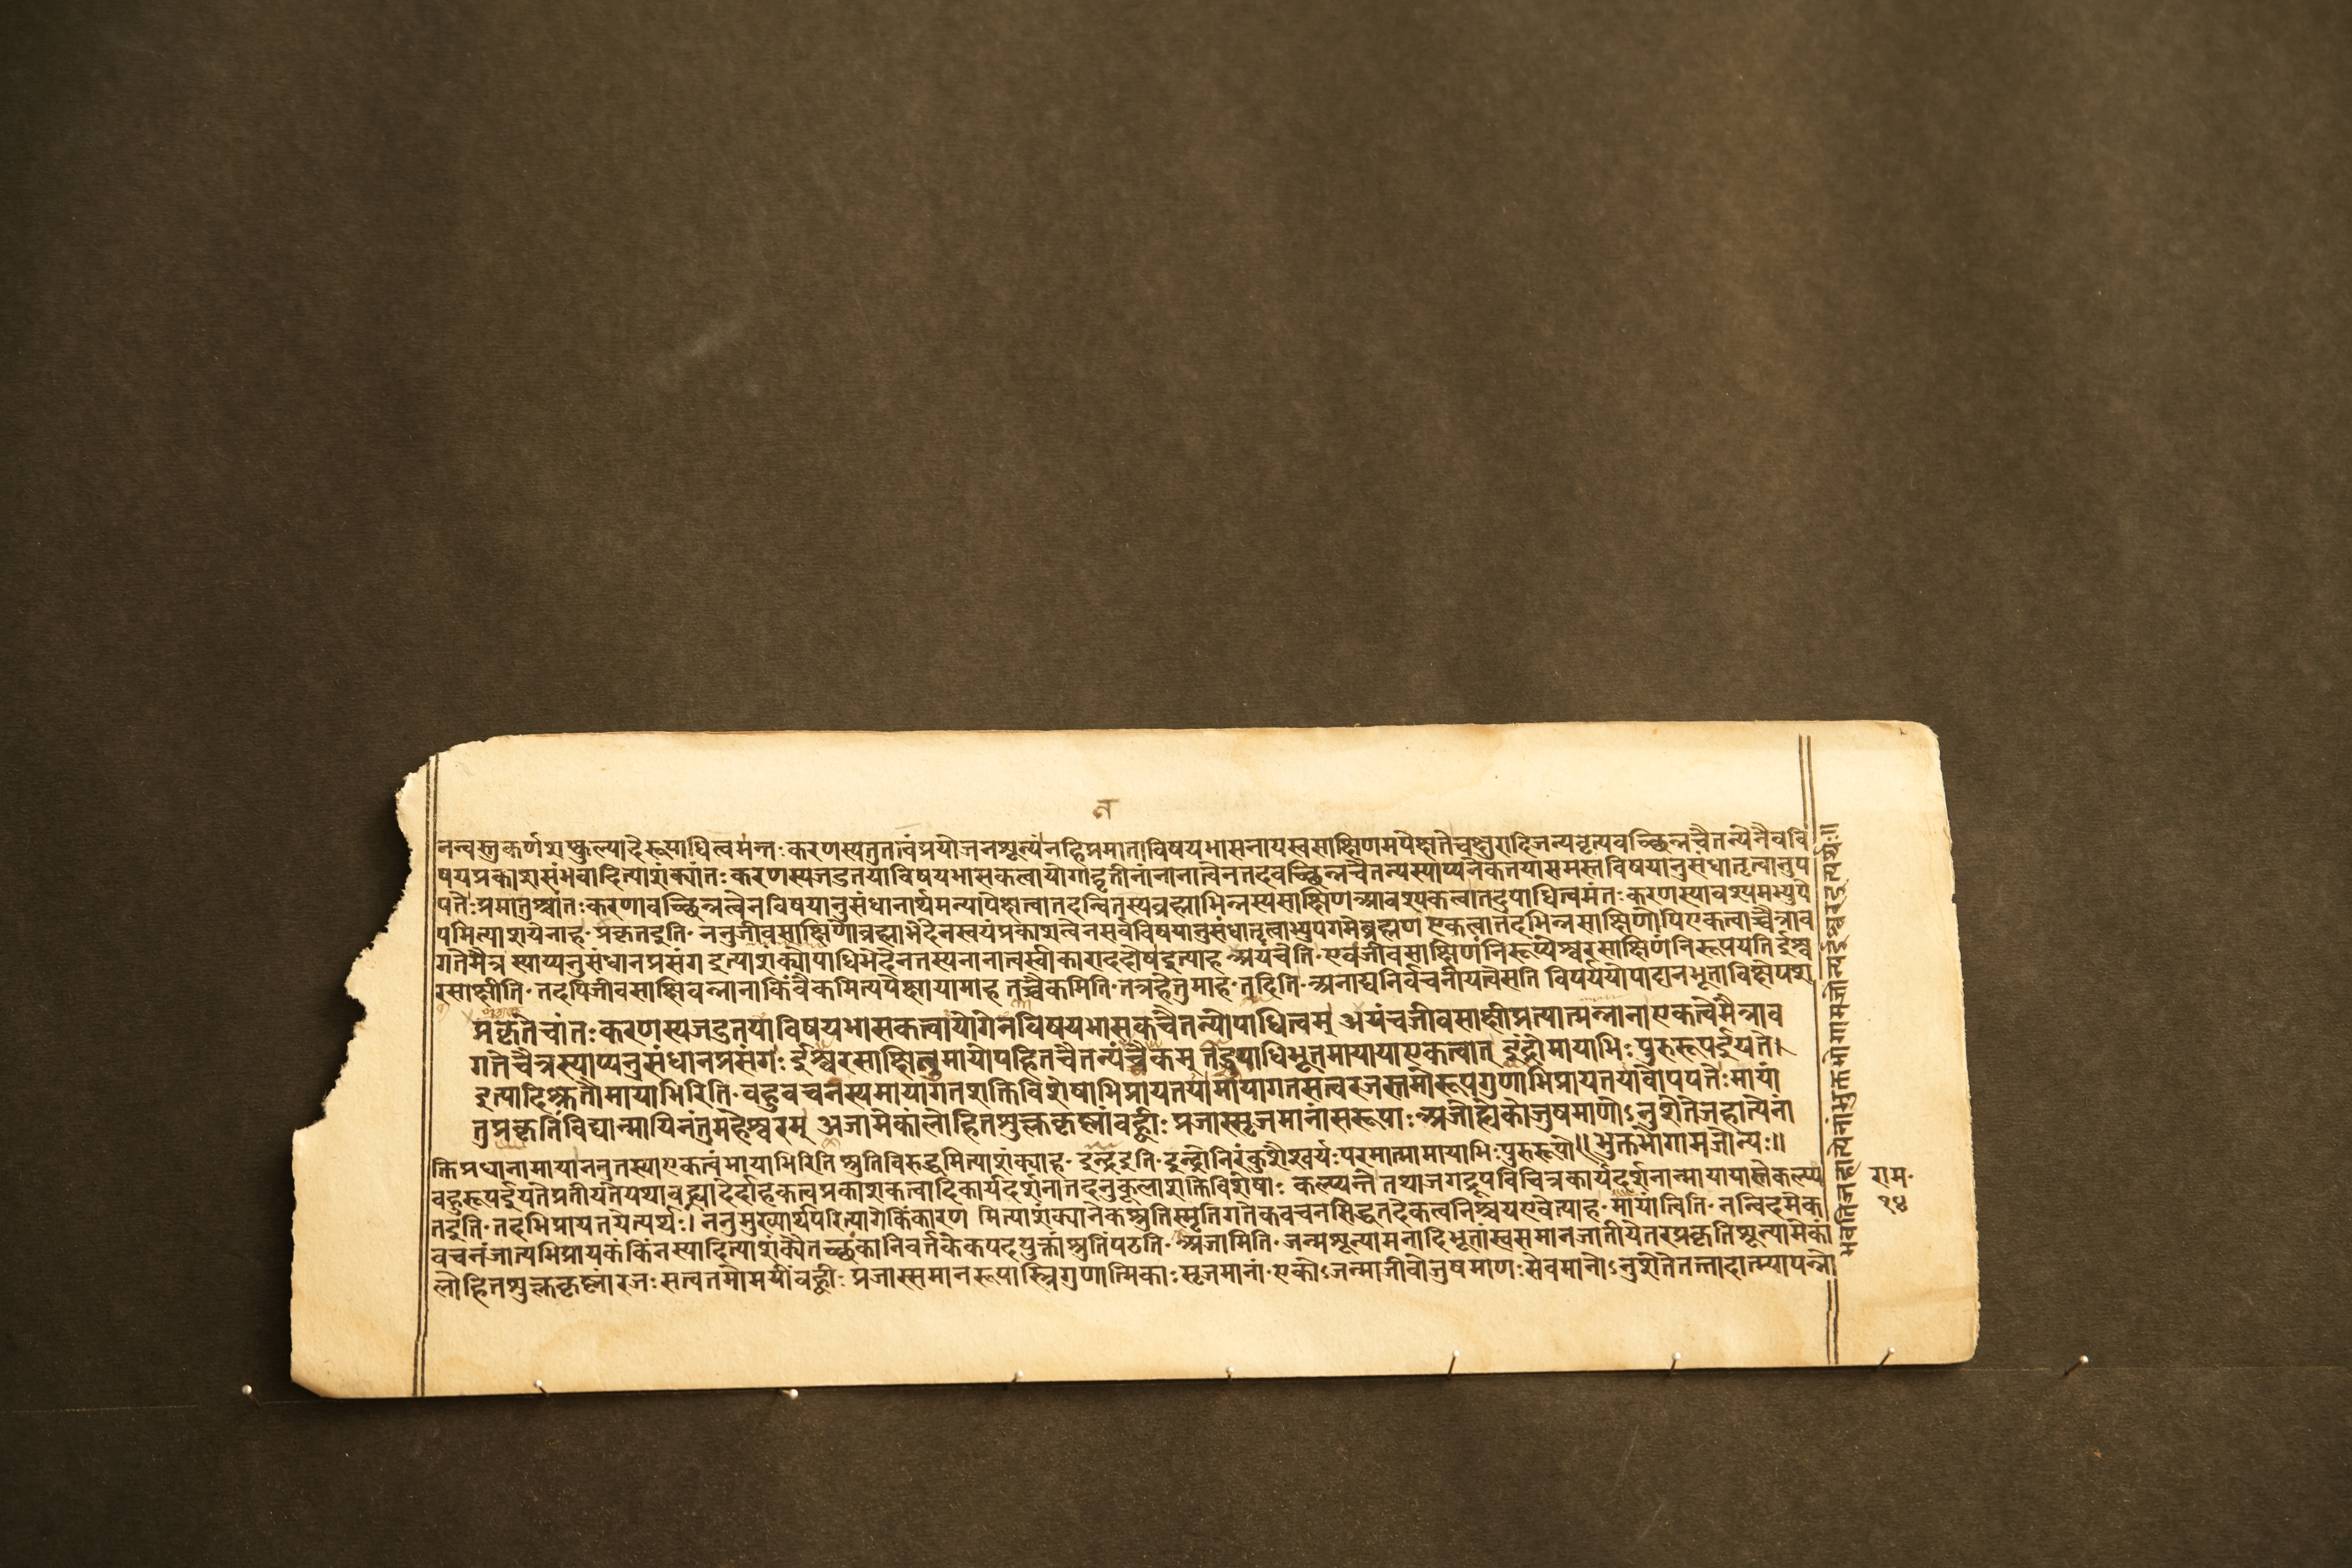 न
नन्वस्तुकर्णशष्कुल्यादेरूपाधित्वमन्तःकरणस्यतुतत्वंप्रयोजनशून्यंनहिप्रमाताविषयभासनायस्वसाक्षिणमपेक्षतेचक्षुरादिजन्यवृत्यवच्छिन्नचैतन्येनैवविं
षयप्रकाशसंभवादित्याशंक्यांतःकरणस्यजडतयाविषयभासकत्वायोगाद्वृतीनांनानात्वेनतदवच्छिन्नचैतन्यस्याप्यनेकतयासमस्तविषयानुसंधातृत्वानुप
पत्तेःप्रमातुश्चांतःकरणावच्छिन्नत्वेनविषयानुसंधानार्थमन्यापेक्षत्वातदन्वितस्यब्रह्माभिन्नस्यसाक्षिणआवश्यकत्वातदुपाधित्वमंतःकरणस्यावश्यमभ्युपे
यमित्याशयेनाह॰प्रकृतइति॰ननुजीवसाक्षिणोब्रह्माभेदेनस्वयंप्रकाशत्वेनसर्वविषयानुसंधातृत्वाभ्युपगमेब्रह्मण एकत्वातदभिन्नसाक्षिणोपिएकत्वाच्चैत्राव
गतेमैत्र स्याप्यनुसंधानप्रसंग इत्याशंक्योपाधिभेदेनतस्यनानात्वस्वीकाराददोषइत्याह अयंचेति॰एवंजीवसाक्षिणंनिरूप्येश्वरसाक्षिणंनिरूपयतिईश्व
रसाक्षीति॰तदपिजीवसाक्षिवन्नानाकिंवैकमित्यपेक्षायामाह तच्चैकमिति॰तत्रहेतुमाह॰तदिति॰अनाद्यनिर्वचनीयत्वेसति विपर्ययोपादानभूताविक्षेपश
प्रकृतेचांतःकरणस्यजडतयाविषयभासकत्वायोगेनविषयभासकचैतन्योपाधित्वम् अयंचजीवसाक्षीप्रत्यात्मन्नानाएकत्वेमैत्राव
गतेचैत्रस्याप्यनुसंधानप्रसंगः ईश्वरसाक्षितुमायोपहितचैतन्यंतच्चैकम् तदुपाधिभूतमायायाएकत्वात् इंद्रोमायाभिःपुरुरूपईयते।
इत्यादिश्रुतौमायाभिरिति॰बहुवचनस्यमायागतशक्तिविशेषाभिप्रायतयामायागतसत्वरजस्तमोरूपगुणाभिप्रायतयावोपपत्तेःमायां
तुप्रकृतिंविद्यान्मायिनंतुमहेश्वरम् अजामेकांलोहितशुक्लकृष्णांबह्वीः प्रजास्सृजमानांसरूपाः अजोह्येकोजुषमाणोऽनुशेतेजहात्येनां
भुक्तभोगामजोन्यः॥
क्तिप्रधानामायाननुतस्याएकत्वंमायाभिरिति श्रुतिविरुद्धमित्याशंक्याह॰इन्द्रइति॰इन्द्रोनिरंकुशैश्वर्यःपरमात्मामायाभिःपुरुरूपो॥
बहुरूपईयतेप्रतीयतेयथावह्न्यादेर्दाहकत्वप्रकाशकत्वादिकार्यदर्शनातदनुकूलाशक्तिविशेषाः कल्प्यन्ते तथाजगद्रूपविचित्रकार्यदर्शनान्मायायास्तेकल्प्य
तइति॰तदभिप्रायतयेत्यर्थः। ननुमुख्यार्थपरित्यागेकिंकारण मित्याशंक्यानेकश्रुतिस्मृतिगतैकवचनसिद्धतदेकत्वनिश्चयएवेत्याह॰मायांत्विति॰नन्विदमेक
वचनंजात्यभिप्रायकंकिंनस्यादित्याशंक्यैतच्छंकानिवर्तकैकपदयुक्तांश्रुतिंपठति॰अजामिति॰जन्मशून्यामनादिभूतांस्वसमानजातीयेतरप्रकृतिशून्यामेकां
लोहितशुक्लकृष्णांरजःसत्वतमोमयींबह्वीः प्रजास्समानरूपास्त्रिगुणात्मिकाःसृजमानां॰एकोऽजन्माजीवोजुषमाणःसेवमानोऽनुशेतेतत्तादात्म्यापन्नो
राम॰
१४